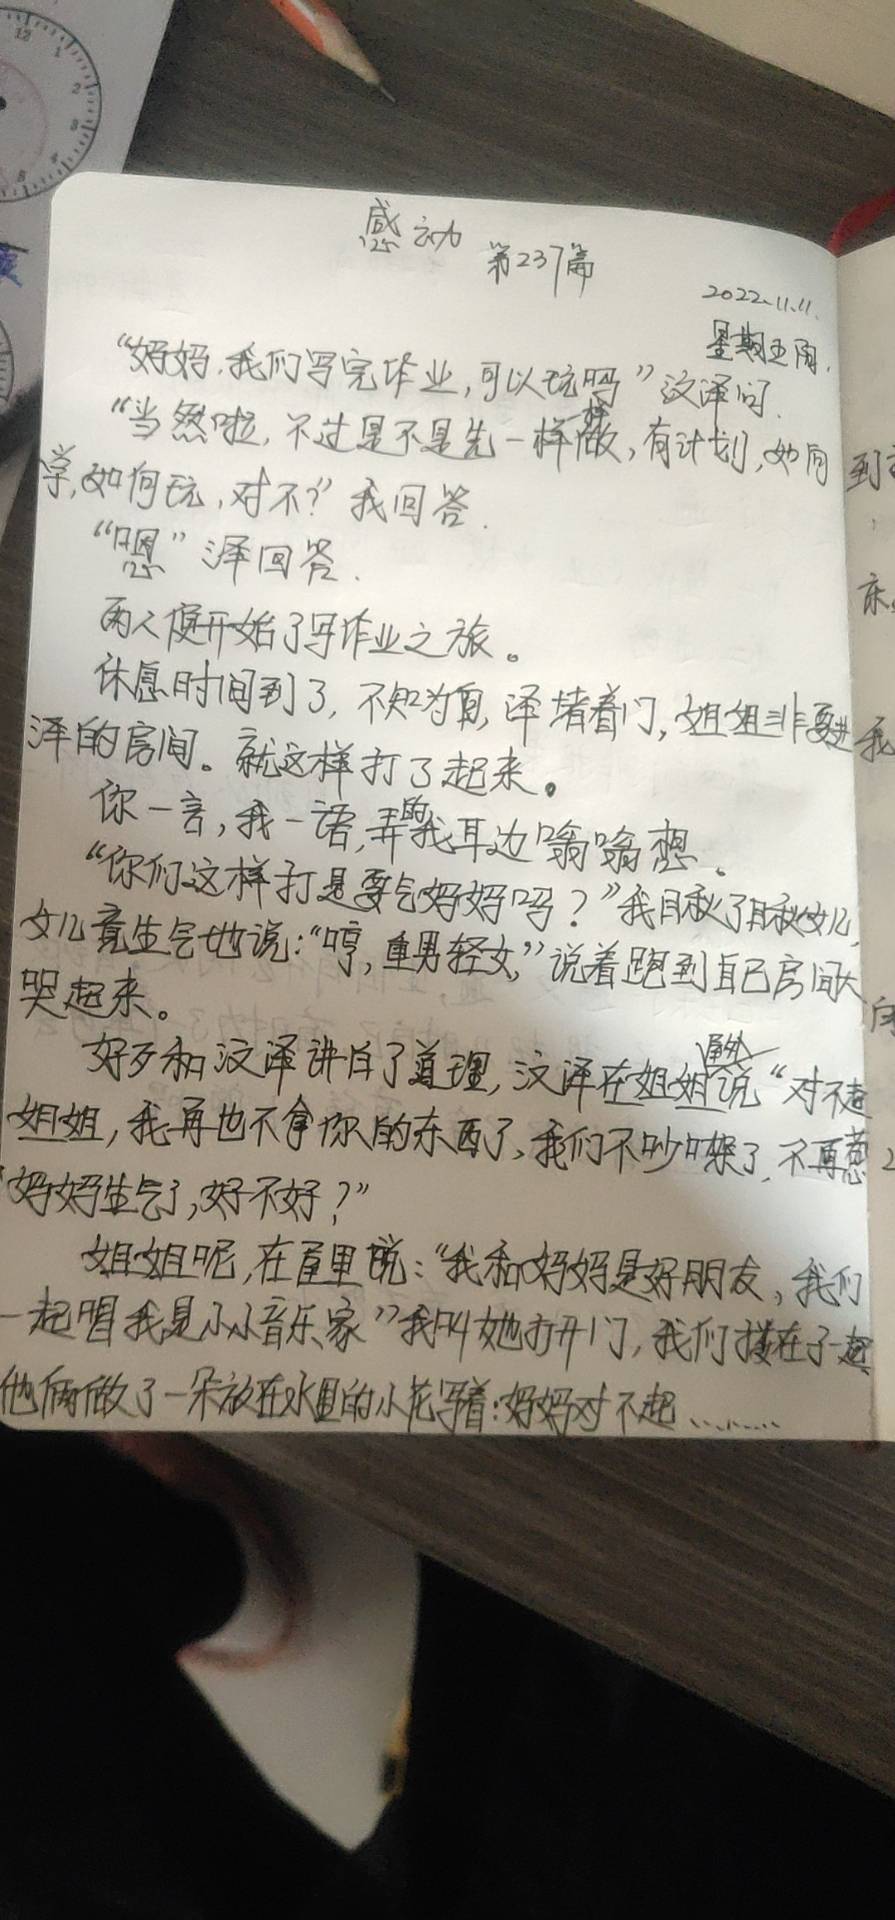 感动
第237篇
2022.11.11.
星期五雨.
“妈妈.我们写完作业,可以玩吗”汶泽问.
“当然啦,不过是不是先一样一样做,有计划,如何
学,如何玩,对不?”我回答.
“嗯”泽回答.
两人便开始了写作业之旅。
休息时间到了,不知为自,泽堵着门,姐姐非要进
泽的房间。就这样打了起来。
你一言,我一语,弄的我耳边嗡嗡想。
“你们这样打是要气妈妈吗?”我瞅了瞅女儿,
女儿竟生气地说:“哼,重男轻女,”说着跑到自己房间大
哭起来。
好歹和汶泽讲白了道理,汶泽在姐姐屋外说“对不起
姐姐,我再也不拿你的东西了,我们不吵架了,不再惹
妈妈生气了,好不好?”
姐姐呢,在屋里说:“我和妈妈是好朋友,我们
一起唱我是小小音乐家”我叫她打开门,我们搂在了一起
他俩做了一朵放在水里的小花写着:妈妈对不起………
到
床
我